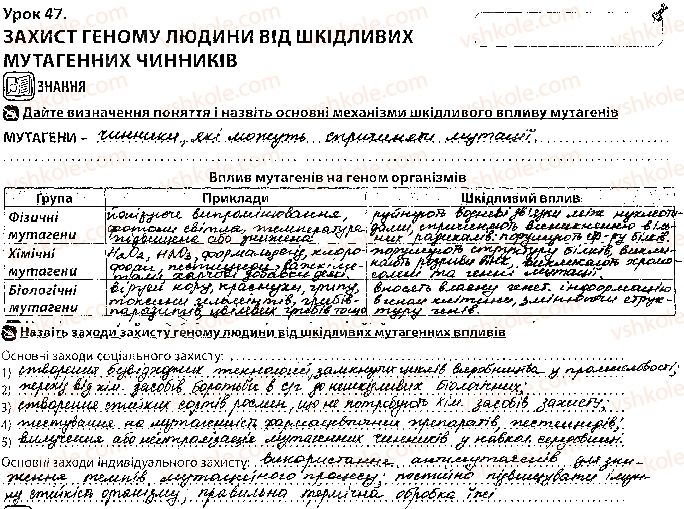 Урок 47.
ЗАХИСТ ГЕНОМУ ЛЮДИНИ ВІД ШКІДЛИВИХ
МУТАГЕННИХ ЧИННИКІВ
ЗНАННЯ
Дайте визначення поняття і назвіть основні механізми шкідливого впливу мутагенів
МУТАГЕНИ – чинники, які можуть спричиняти мутації.
Вплив мутагенів на геном організмів
Група Приклади Шкідливий вплив
Фізичні мутагени
йонізуюче випромінювання,
фотони світла, температура
підвищена або знижена
руйнують водневі зв'язки між нуклеоти-
дами, спричиняють виникненню віль-
них радикалів. порушують стр-ру білків.
Хімічні мутагени
H₂O₂, HNO₂, формальдегід, хлоро-
форм, пестициди, важкі ме-
порушують структуру білків, викли-
кають розриви днк, викликають хромо-
сомні та генні мутації.
Біологічні мутагени
віруси кору, краснухи, грипу,
токсини гельмінтів, грибів-
паразитів, цвілевих грибів тощо
вносять власну генет. інформацію
в геном клітини, змінюючи струк-
туру генів.
Назвіть заходи захисту геному людини від шкідливих мутагенних впливів
Основні заходи соціального захисту:
1) створення безвідходних технологій, замкнутих циклів виробництва у промисловості;
2) перехід від хім. засобів боротьби в с/г до нешкідливих біологічних;
3) створення стійких сортів рослин, що не потребують хім. засобів захисту;
4) тестування на мутагенність фармацевтичних препаратів, пестицидів;
5) вилучення або нейтралізація мутагенних чинників у навкол. середовищі.
Основні заходи індивідуального захисту: використання антимутагенів для зни-
ження темпів мутаційного процесу; постійно підвищувати імун-
ну стійкість організму, правильна термічна обробка їжі
vshkole.com